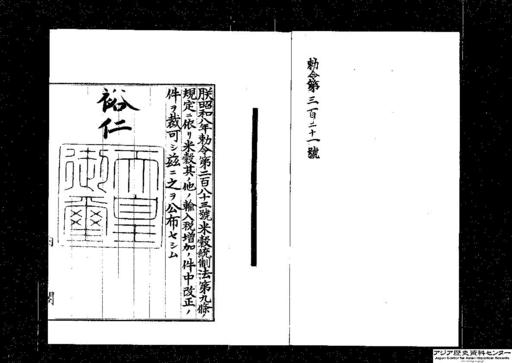 勅令第三百二十一號
朕昭和八年勅令第二百八十三號米穀統制法第九條ノ
規定ニ依リ米穀其ノ他ノ輸入税増加ノ件中改正ノ
件ヲ裁可シ茲ニ之ヲ公布セシム
裕仁
天皇御璽
内閣
アジア歴史資料センター
Japan Center for Asian Historical Records